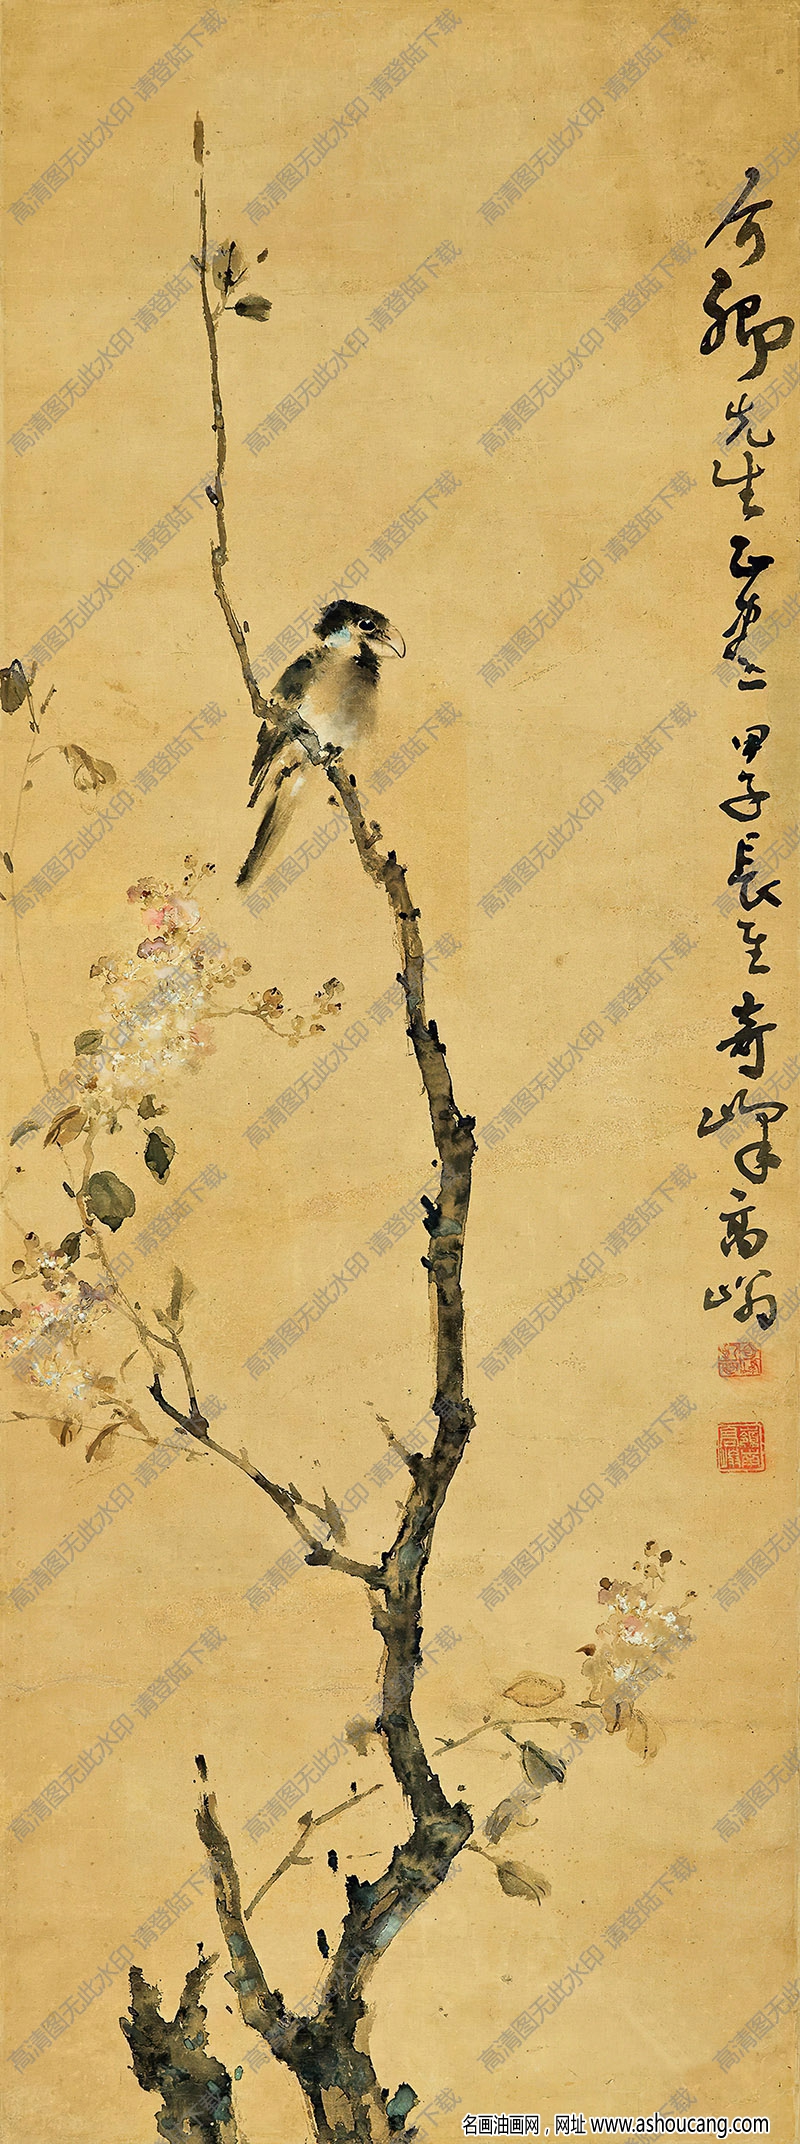 介卿先生正画之甲子長至奇峰高嵡
名画油画网，网址 www.ashoucang.com
高清图无此水印 请登陆下载